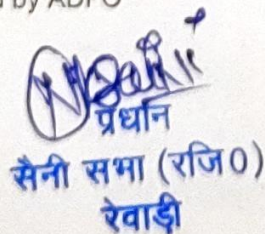 by ADPO
प्रधान
सैनी सभा (रजि0)
रेवाड़ी